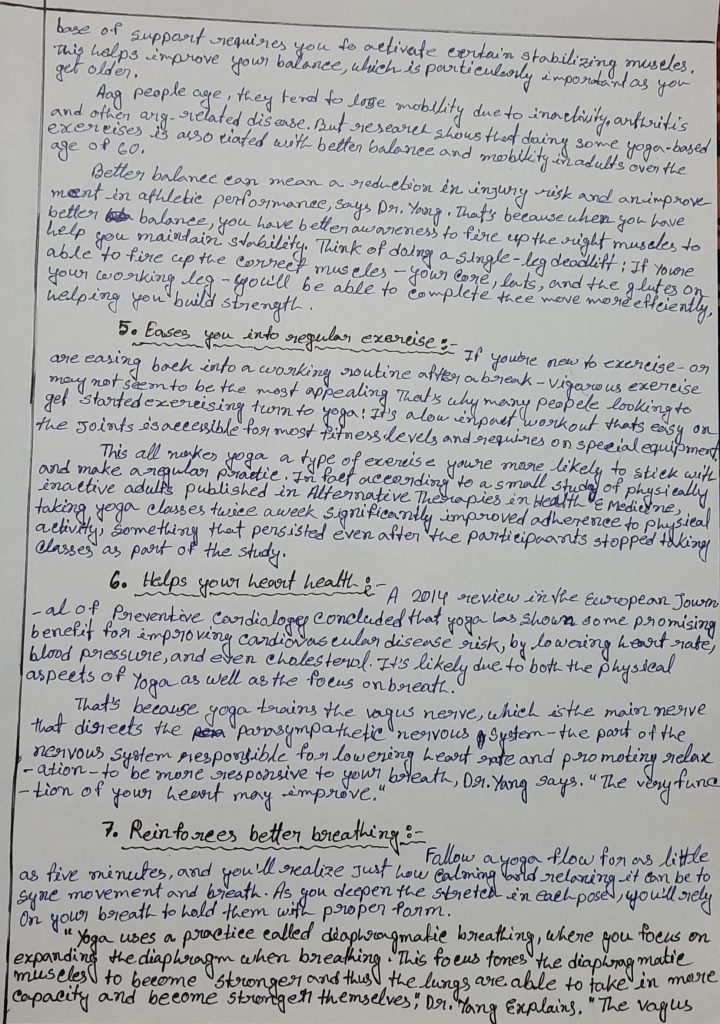 base of support requires you to activate certain stabilizing muscles.
This helps improve your balance, which is particularly important as you
get older.
Aag people age, they tend to lose mobility due to inactivity, arthritis
and other arg-related disease. But research shows that doing some yoga-based
exercises is asso ciated with better balance and mobility in adults over the
age of 60.
Better balance can mean a reduction in injury risk and an improve
ment in athletic performance, says Dr. Yang. That's because when you have
better balance, you have better awareness to fire up the right muscles to
help you maintain stability. Think of doing a single-leg deadlift: If youre
able to fire up the correct muscles - your core, lats, and the glutes on
your working leg - you'll be able to complete thee move more efficiently,
helping you build strength.
5. Eases you into regular exercise :-
If you're new to exercise - or
are easing back into a working routine after a break - vigorous exercise
may not seem to be the most appealing That's why many peopele looking to
get started exercising turn to yoga: It's a low inpact workout thats easy on
the joints is accessible for most fitness levels and requires on special equipment
This all makes yoga a type of exercise youre more likely to stick with
and make a regular practie. In fact according to a small study of physically
inactive adults published in Alternative Therapies in Health & Medicine,
taking yoga classes twice aweek significantly improved adherence to physical
activity, something that persisted even after the participaants stopped taking
classes as part of the study.
6. Helps your heart health :-
A 2014 review in the European Journ
-al of Preventive Cardialogey concluded that yoga has shown some promising
benefit for improving cardiovascular disease risk, by lowering heart rate,
blood pressure, and even cholesterol. It's likely due to both the physical
aspects of Yoga as well as the focus on breath.
That's because yoga trains the vagus nerve, which is the main nerve
that directs the parasympathetic nervous System - the part of the
nervous system responsible for lowering heart rate and promoting relax
-ation - to be more responsive to your breath, Dr. Yang says. "The very func
-tion of your heart may improve."
7. Reinforces better breathing :-
Fallow a yoga flow for as little
as five minutes, and you'll realize Just how calming and relaxing it can be to
sync movement and breath. As you deepen the stretch in each pose, you'll rely
On your breath to hold them with proper form.
"Yoga uses a practice called diaphragmatic breathing, where you focus on
expanding the diaphragm when breathing. This focus tones the diaphragmatic
muscles to become stronger and thus the lungs are able to take in more
capacity and become stronger themselves", Dr. Yang Explains. "The vagus